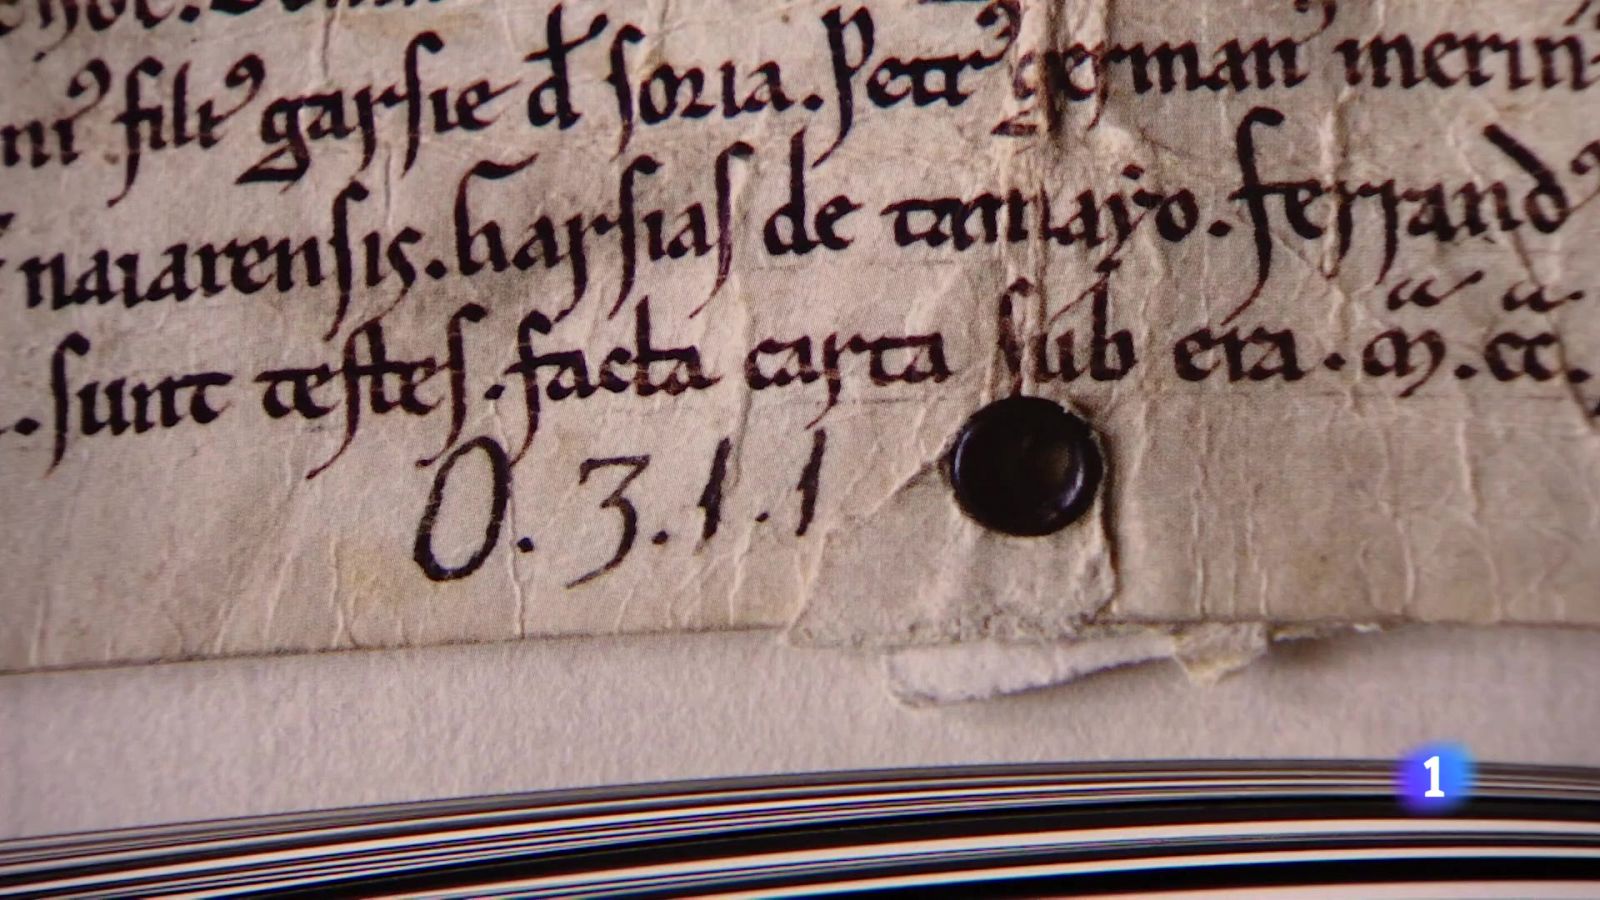 niꝰ filiꝰ garsie d̵ soria. Petrꝰ german merin
naiarensis. Garsias de tamayo. ferrandꝰ
. sunt testes. facta carta sub era. M. CC.
O. 3. 1. 1
1